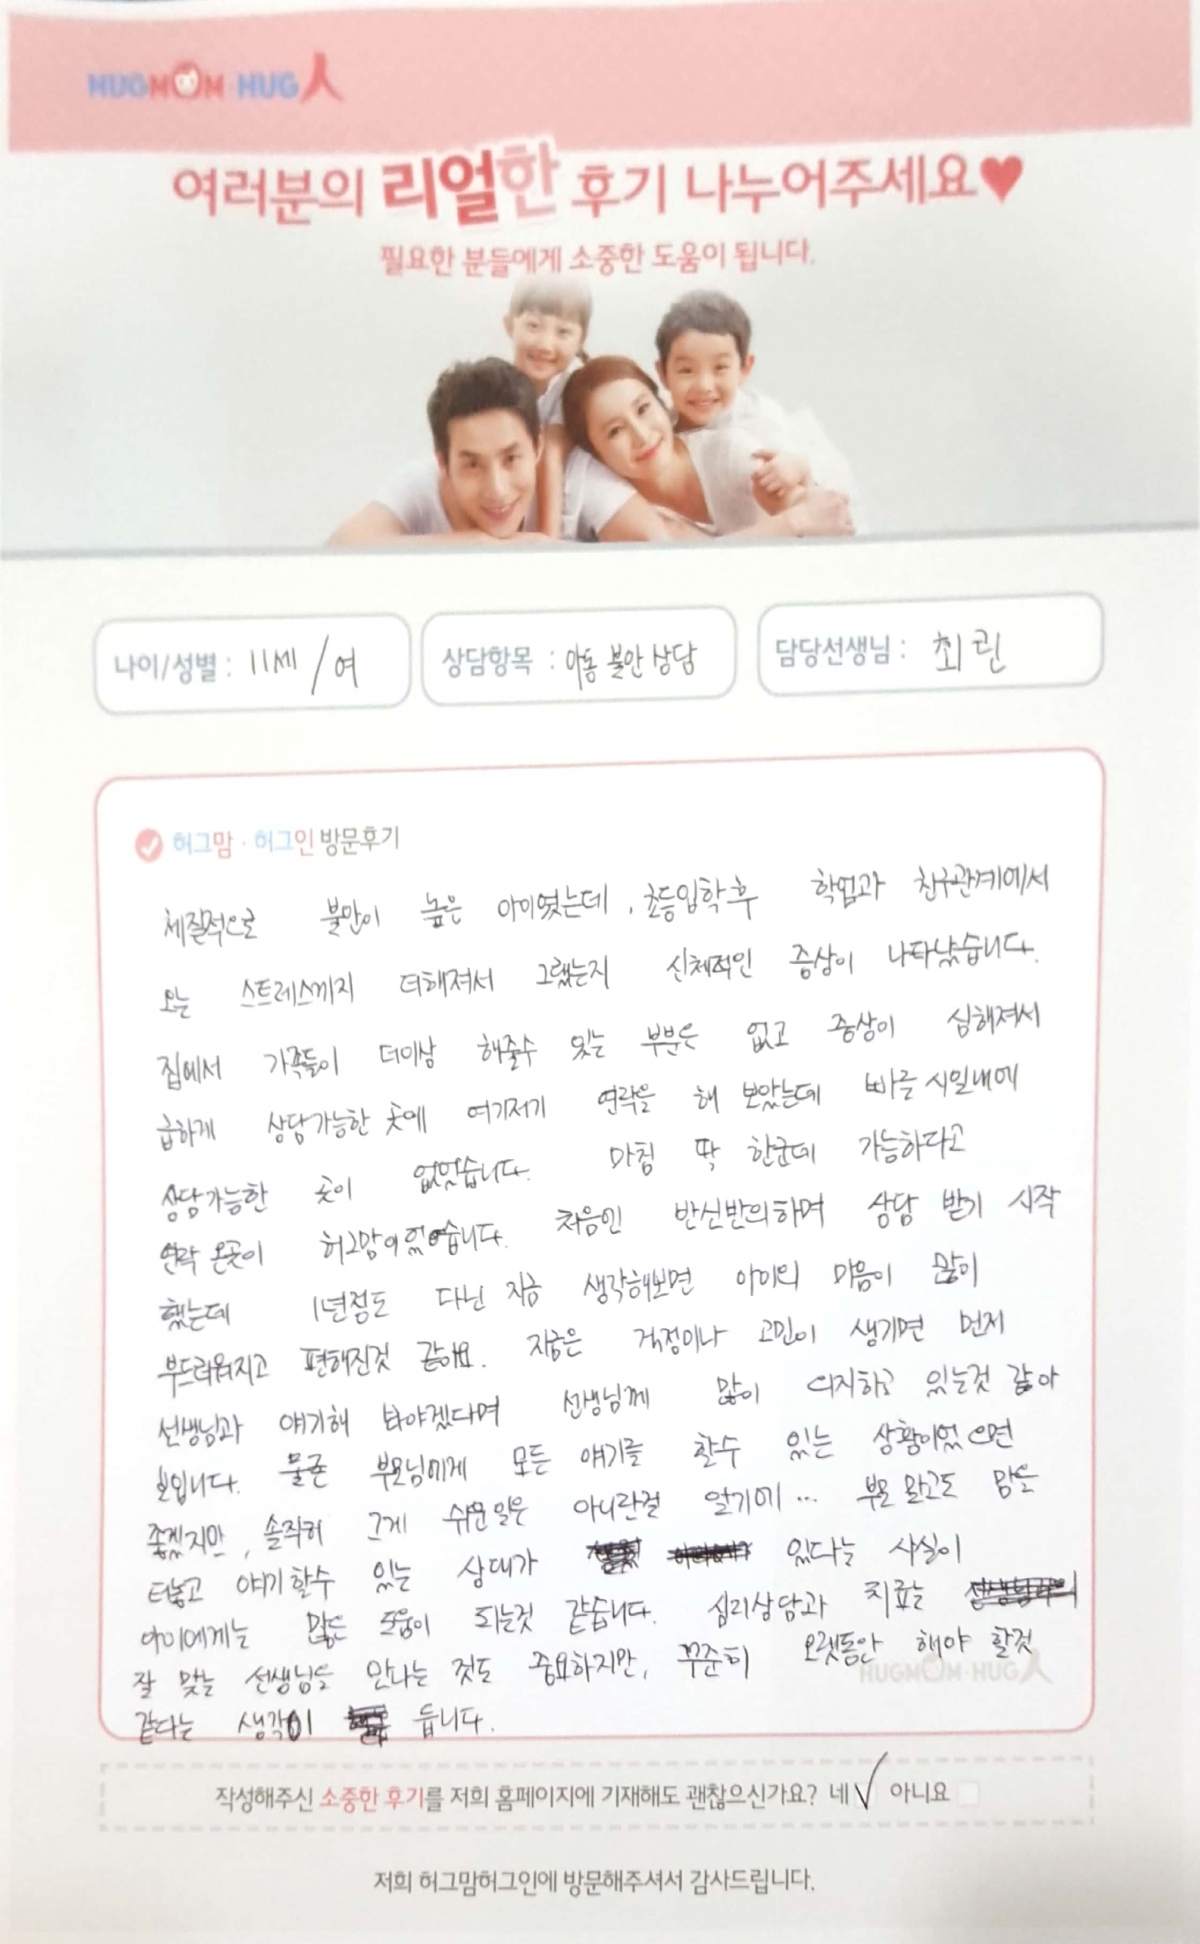 HUGMOM·HUG人
여러분의 리얼한 후기 나누어주세요♥
필요한 분들에게 소중한 도움이 됩니다.
나이/성별 : 11세 / 여
상담항목 : 아동 불안 상담
담당선생님 : 최린
허그맘·허그인 방문후기
체질적으로 불안이 높은 아이였는데, 초등입학후 학업과 친구관계에서
오는 스트레스까지 더해져서 그랬는지 신체적인 증상이 나타났습니다.
집에서 가족들이 더이상 해줄수 있는 부분은 없고 증상이 심해져서
급하게 상담가능한 곳에 여기저기 연락을 해 보았는데 빠른 시일내에
상담가능한 곳이 없었습니다. 마침 딱 한군데 가능하다고
연락 온곳이 허그맘이었습니다. 처음엔 반신반의하며 상담 받기 시작
했는데 1년정도 다닌 지금 생각해보면 아이의 마음이 많이
부드러워지고 편해진것 같아요. 지금은 걱정이나 고민이 생기면 먼저
선생님과 얘기해 봐야겠다며 선생님께 많이 의지하고 있는것 같아
보입니다. 물론 부모님에게 모든 얘기를 할수 있는 상황이었으면
좋겠지만, 솔직히 그게 쉬운일은 아니란걸 알기에... 부모 말고도 맘을
터놓고 얘기할수 있는 상대가 있다는 사실이
아이에게는 많은 도움이 되는것 같습니다. 심리상담과 치료는
잘 맞는 선생님을 만나는 것도 중요하지만, 꾸준히 오랫동안 해야 할것
같다는 생각이 듭니다.
HUGMOM·HUG人
작성해주신 소중한 후기를 저희 홈페이지에 기재해도 괜찮으신가요? 네 ✓ 아니요
저희 허그맘허그인에 방문해주셔서 감사드립니다.